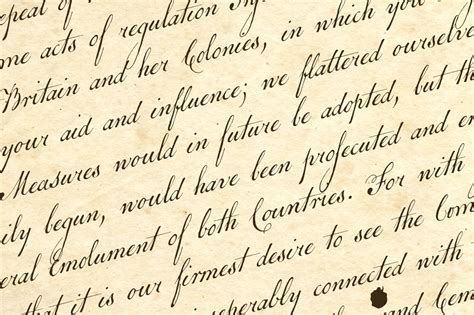 epeal of
me acts of regulation
Britain and her Colonies, in which you
your aid and influence; we flattered ourselve
Measures would in future be adopted, but th
ily begun, would have been profecuted and e
eral Emolument of both Countries. For with
that it is our firmest desire to see the Com
seperably connected with
and